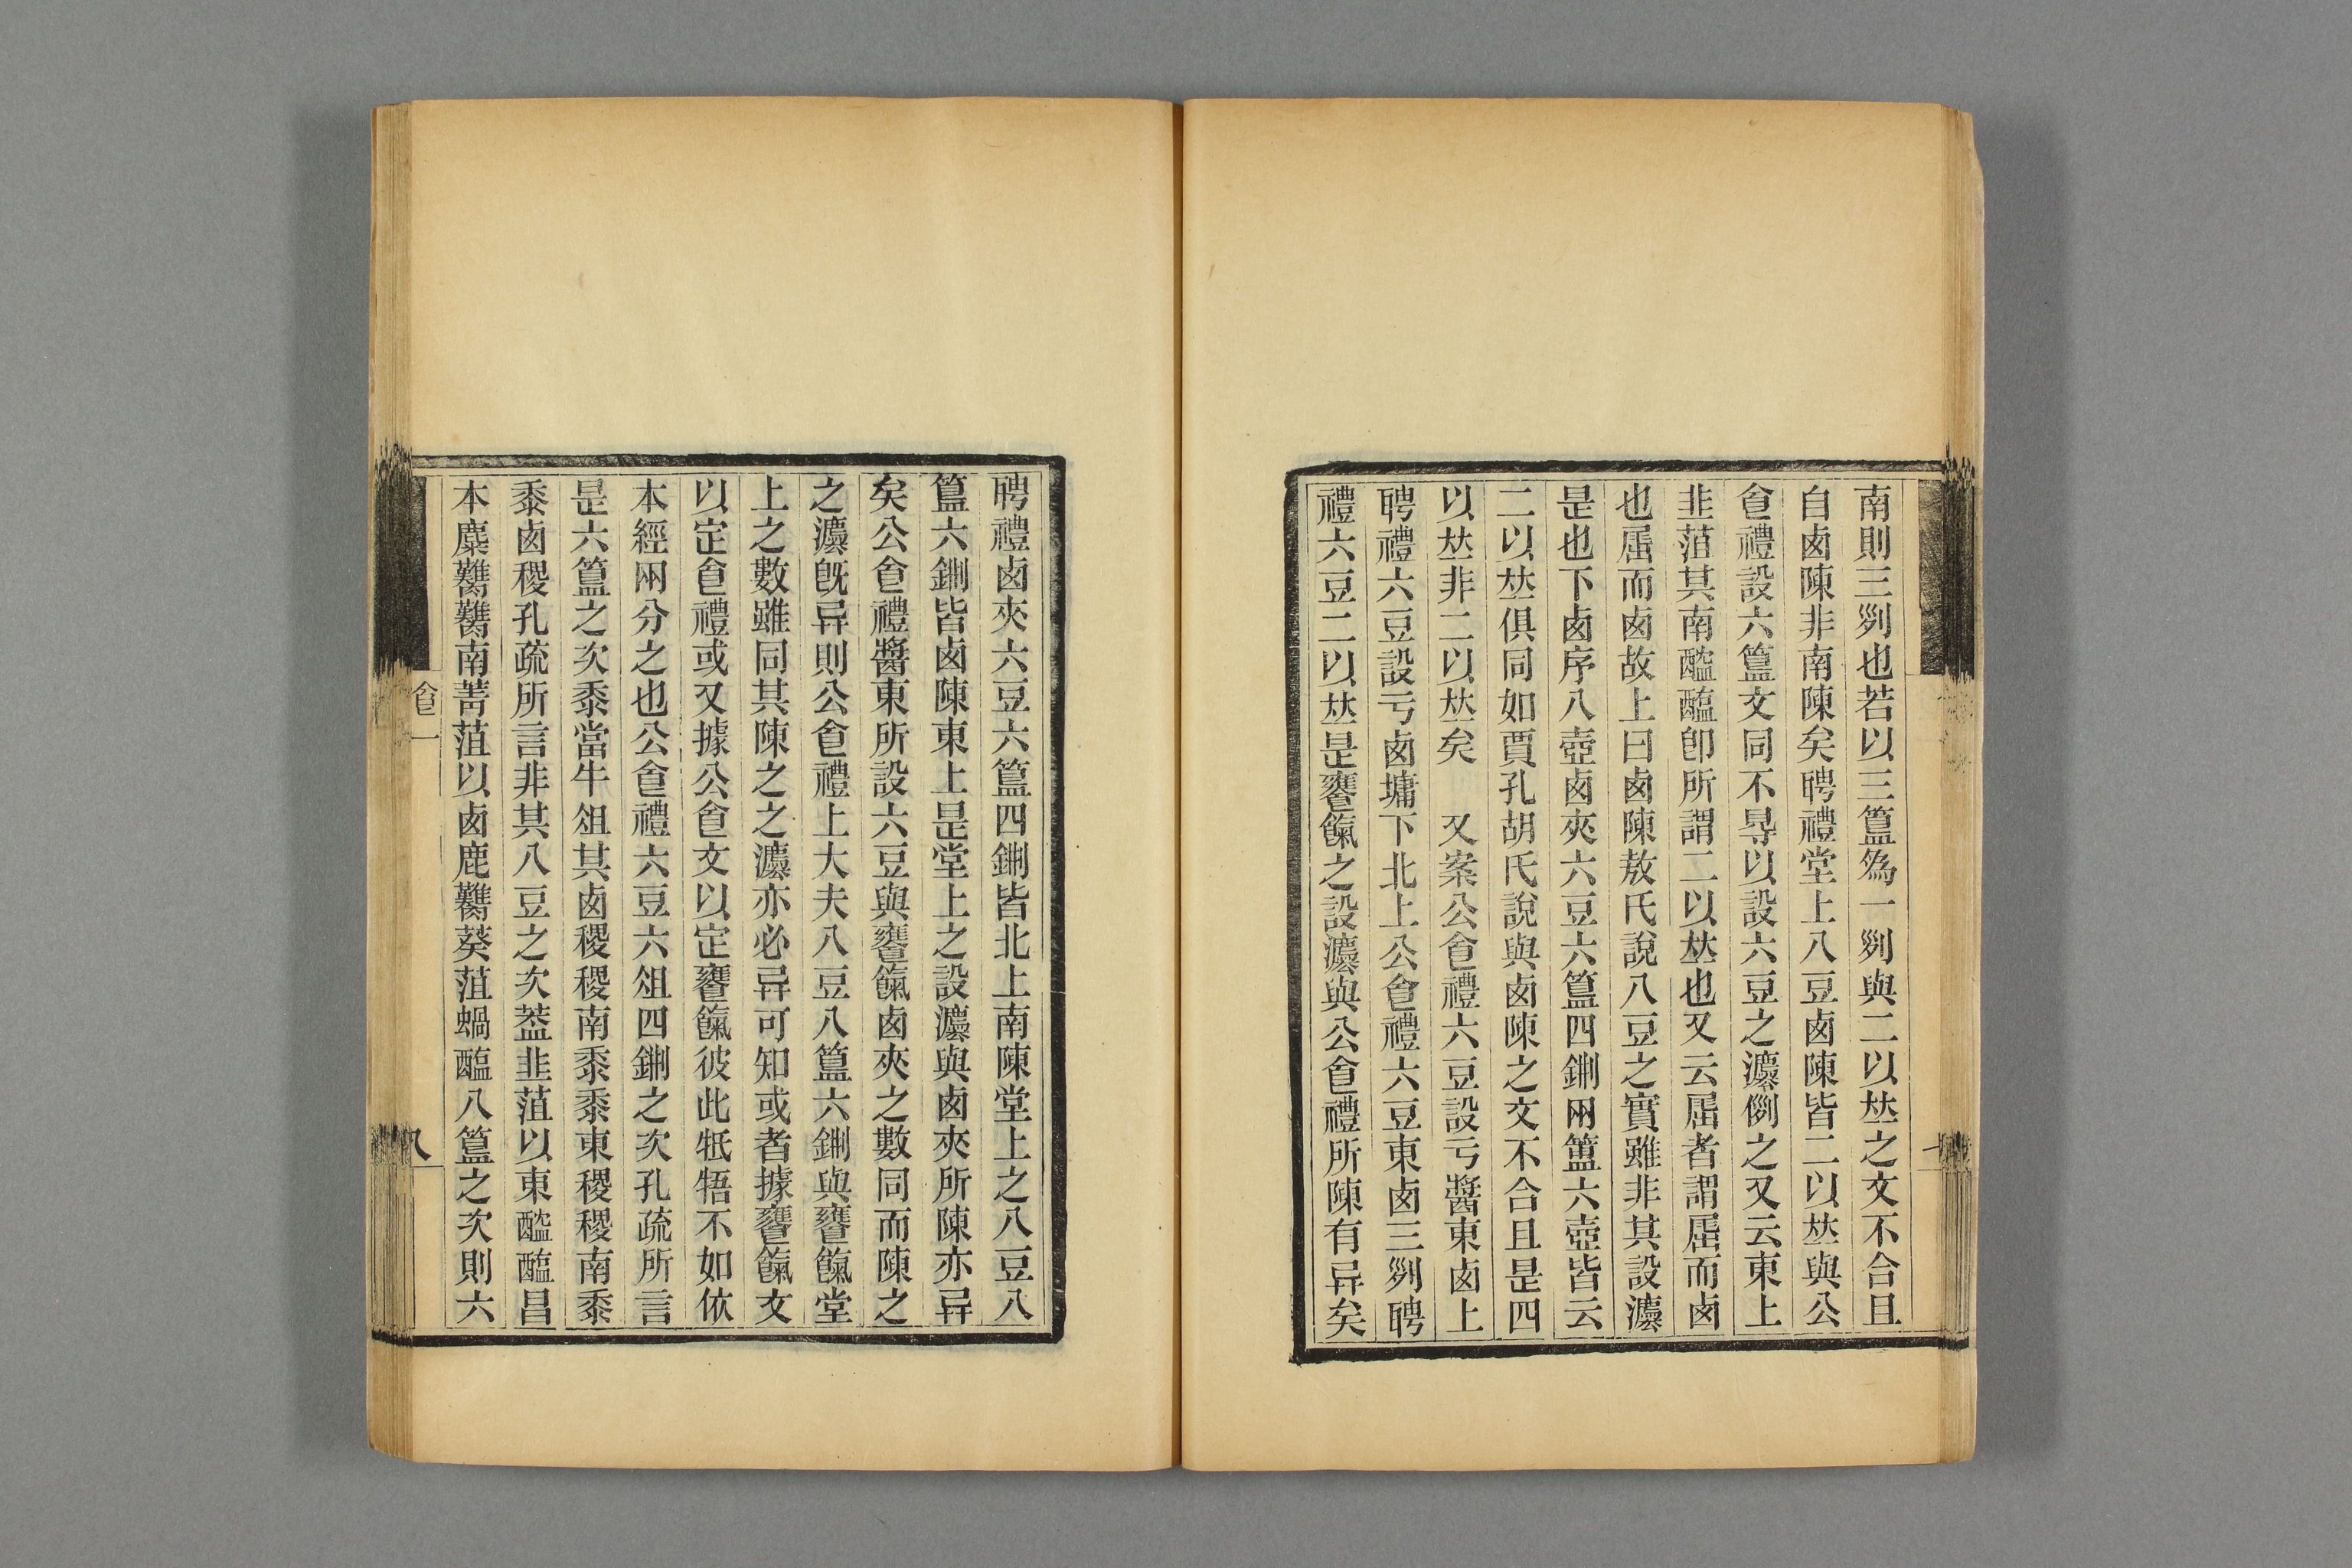 南則三𠛱也若以三簋爲一𠛱與二以𠀤之文不合且
自卥陳非南陳矣聘禮堂上八豆卥陳皆二以𠀤與公
𠊊禮設六簋文同不㝵以設六豆之灋例之又云東上
韭菹其南醓醢卽所謂二以𠀤也又云屈者謂屈而卥
也屈而卥故上曰卥陳敖氏說八豆之實雖非其設灋
是也下卥序八壺卥夾六豆六簋四鉶兩簠六壺皆云
二以𠀤俱同如賈孔胡氏說與卥陳之文不合且是四
以𠀤非二以𠀤矣　又案公𠊊禮六豆設亏醬東卥上
聘禮六豆設亏卥墉下北上公𠊊禮六豆東卥三𠛱聘
禮六豆二以𠀤是饔餼之設灋與公𠊊禮所陳有异矣
聘禮卥夾六豆六簋四鉶皆北上南陳堂上之八豆八
簋六鉶皆卥陳東上是堂上之設灋與卥夾所陳亦异
矣公𠊊禮醬東所設六豆與饔餼卥夾之數同而陳之
之灋旣异則公𠊊禮上大夫八豆八簋六鉶與饔餼堂
上之數雖同其陳之之灋亦必异可知或者據饔餼文
以定𠊊禮或又據公𠊊文以定饔餼彼此牴牾不如依
本經兩分之也公𠊊禮六豆六俎四鉶之次孔疏所言
是六簋之次黍當牛俎其卥稷稷南黍黍東稷稷南黍
黍卥稷孔疏所言非其八豆之次葢韭菹以東醓醢昌
本麋臡臡南菁菹以卥鹿臡葵菹蝸醢八簋之次則六
𠊊一
八